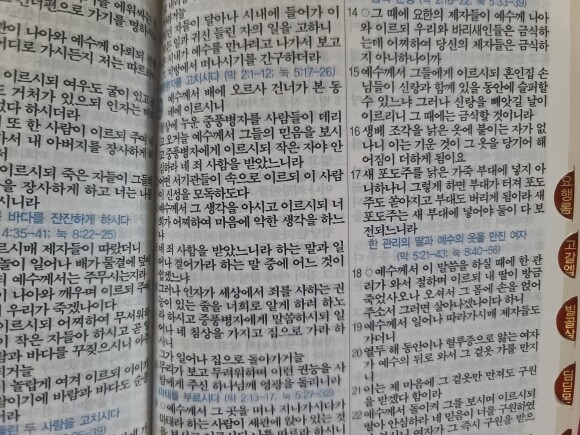 기더편으로 가기를 명하
이 나아와 예수께 아뢰되
디로 가시든지 저는 따르
이르시되 여우도 굴이 있고
거처가 있으되 인자는 머
다 하시더라
또 한 사람이 이르되 주여
서 내 아버지를 장사하게
이르시되 죽은 자들이 그들
을 장사하게 하고 너는 나를
시니라
바다를 잔잔하게 하시다
4:35-41; 눅 8:22-25)
르시매 제자들이 따랐더니
놀이 일어나 배가 물결에 덮
예수께서는 주무시는지라
이 나아와 깨우며 이르되 주
우리가 죽겠나이다
이르시되 어찌하여 무서워하
이 작은 자들아 하시고 곧 일
람과 바다를 꾸짖으시니 아주
거늘
놀랍게 여겨 이르되 이이가
람이기에 바람과 바다도 순종
들린 두 사람을 고치시다
자들이 달아나 시내에 들어가 이
일과 귀신 들린 자의 일을 고하니
시내가 예수를 만나려고 나가서 보고
지방에서 떠나시기를 간구하더라
자를 고치시다 (막 2:1-12; 눅 5:17-26)
예수께서 배에 오르사 건너가 본 동
네에 이르시니
상에 누운 중풍병자를 사람들이 데리
오거늘 예수께서 그들의 믿음을 보시
중풍병자에게 이르시되 작은 자야 안
심하라 네 죄 사함을 받았느니라
어떤 서기관들이 속으로 이르되 이 사람
이 신성을 모독하도다
예수께서 그 생각을 아시고 이르시되 너
희가 어찌하여 마음에 악한 생각을 하느
냐
네 죄 사함을 받았느니라 하는 말과 일
어나 걸어가라 하는 말 중에 어느 것이
쉽겠느냐
그러나 인자가 세상에서 죄를 사하는 권
능이 있는 줄을 너희로 알게 하려 하노
라 하시고 중풍병자에게 말씀하시되 일
어나 네 침상을 가지고 집으로 가라 하
시니
그가 일어나 집으로 돌아가거늘
무리가 보고 두려워하며 이런 권능을 사
람에게 주신 하나님께 영광을 돌리니라
마태를 부르시다 (막 2:13-17; 눅 5:27-32)
예수께서 그 곳을 떠나 지나가시다가
14 ○그 때에 요한의 제자들이 예수께 나아
와 이르되 우리와 바리새인들은 금식하
는데 어찌하여 당신의 제자들은 금식하
지 아니하나이까
15 예수께서 그들에게 이르시되 혼인집 손
님들이 신랑과 함께 있을 동안에 슬퍼할
수 있느냐 그러나 신랑을 빼앗길 날이
이르리니 그 때에는 금식할 것이니라
16 생베 조각을 낡은 옷에 붙이는 자가 없
나니 이는 기운 것이 그 옷을 당기어 해
어짐이 더하게 됨이요
17 새 포도주를 낡은 가죽 부대에 넣지 아
니하나니 그렇게 하면 부대가 터져 포도
주도 쏟아지고 부대도 버리게 됨이라 새
포도주는 새 부대에 넣어야 둘이 다 보
전되느니라
한 관리의 딸과 예수의 옷을 만진 여자
(막 5:21-43; 눅 8:40-56)
18 ○예수께서 이 말씀을 하실 때에 한 관
리가 와서 절하며 이르되 내 딸이 방금
죽었사오나 오셔서 그 몸에 손을 얹어
주소서 그러면 살아나겠나이다 하니
19 예수께서 일어나 따라가시매 제자들도
가더니
20 열두 해 동안이나 혈루증으로 앓는 여자
가 예수의 뒤로 와서 그 겉옷 가를 만지
니
21 이는 제 마음에 그 겉옷만 만져도 구원
을 받겠다 함이라
22 예수께서 돌이켜 그를 보시며 이르시되
딸아 안심하라 네 믿음이 너를 구원하였
요행롬
고갈엡
빌골살
딤딛몬